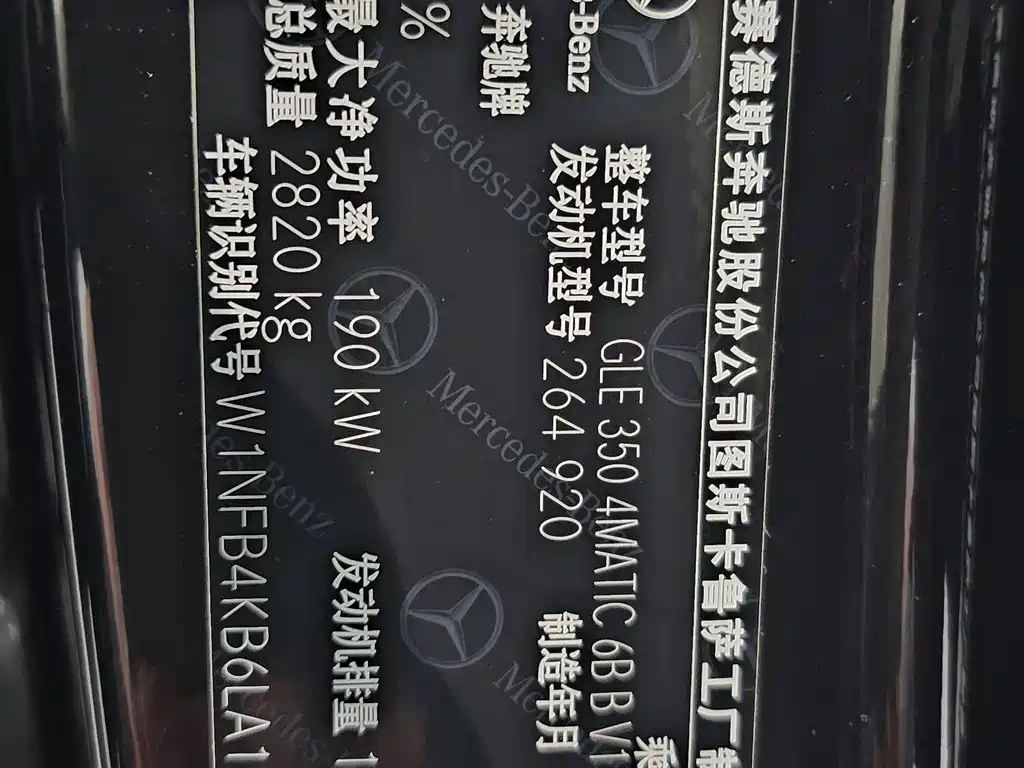 赛德斯奔驰股份公司图斯卡鲁萨工厂制
-Benz
整车型号 GLE 350 4MATIC 6BBV1
乘
奔驰牌
发动机型号 264 920
制造年月
%
最大净功率 190 kW
发动机排量 1
总质量 2820 kg
车辆识别代号 W1NFB4KB6LA1
Mercedes-Benz
Mercedes-Be